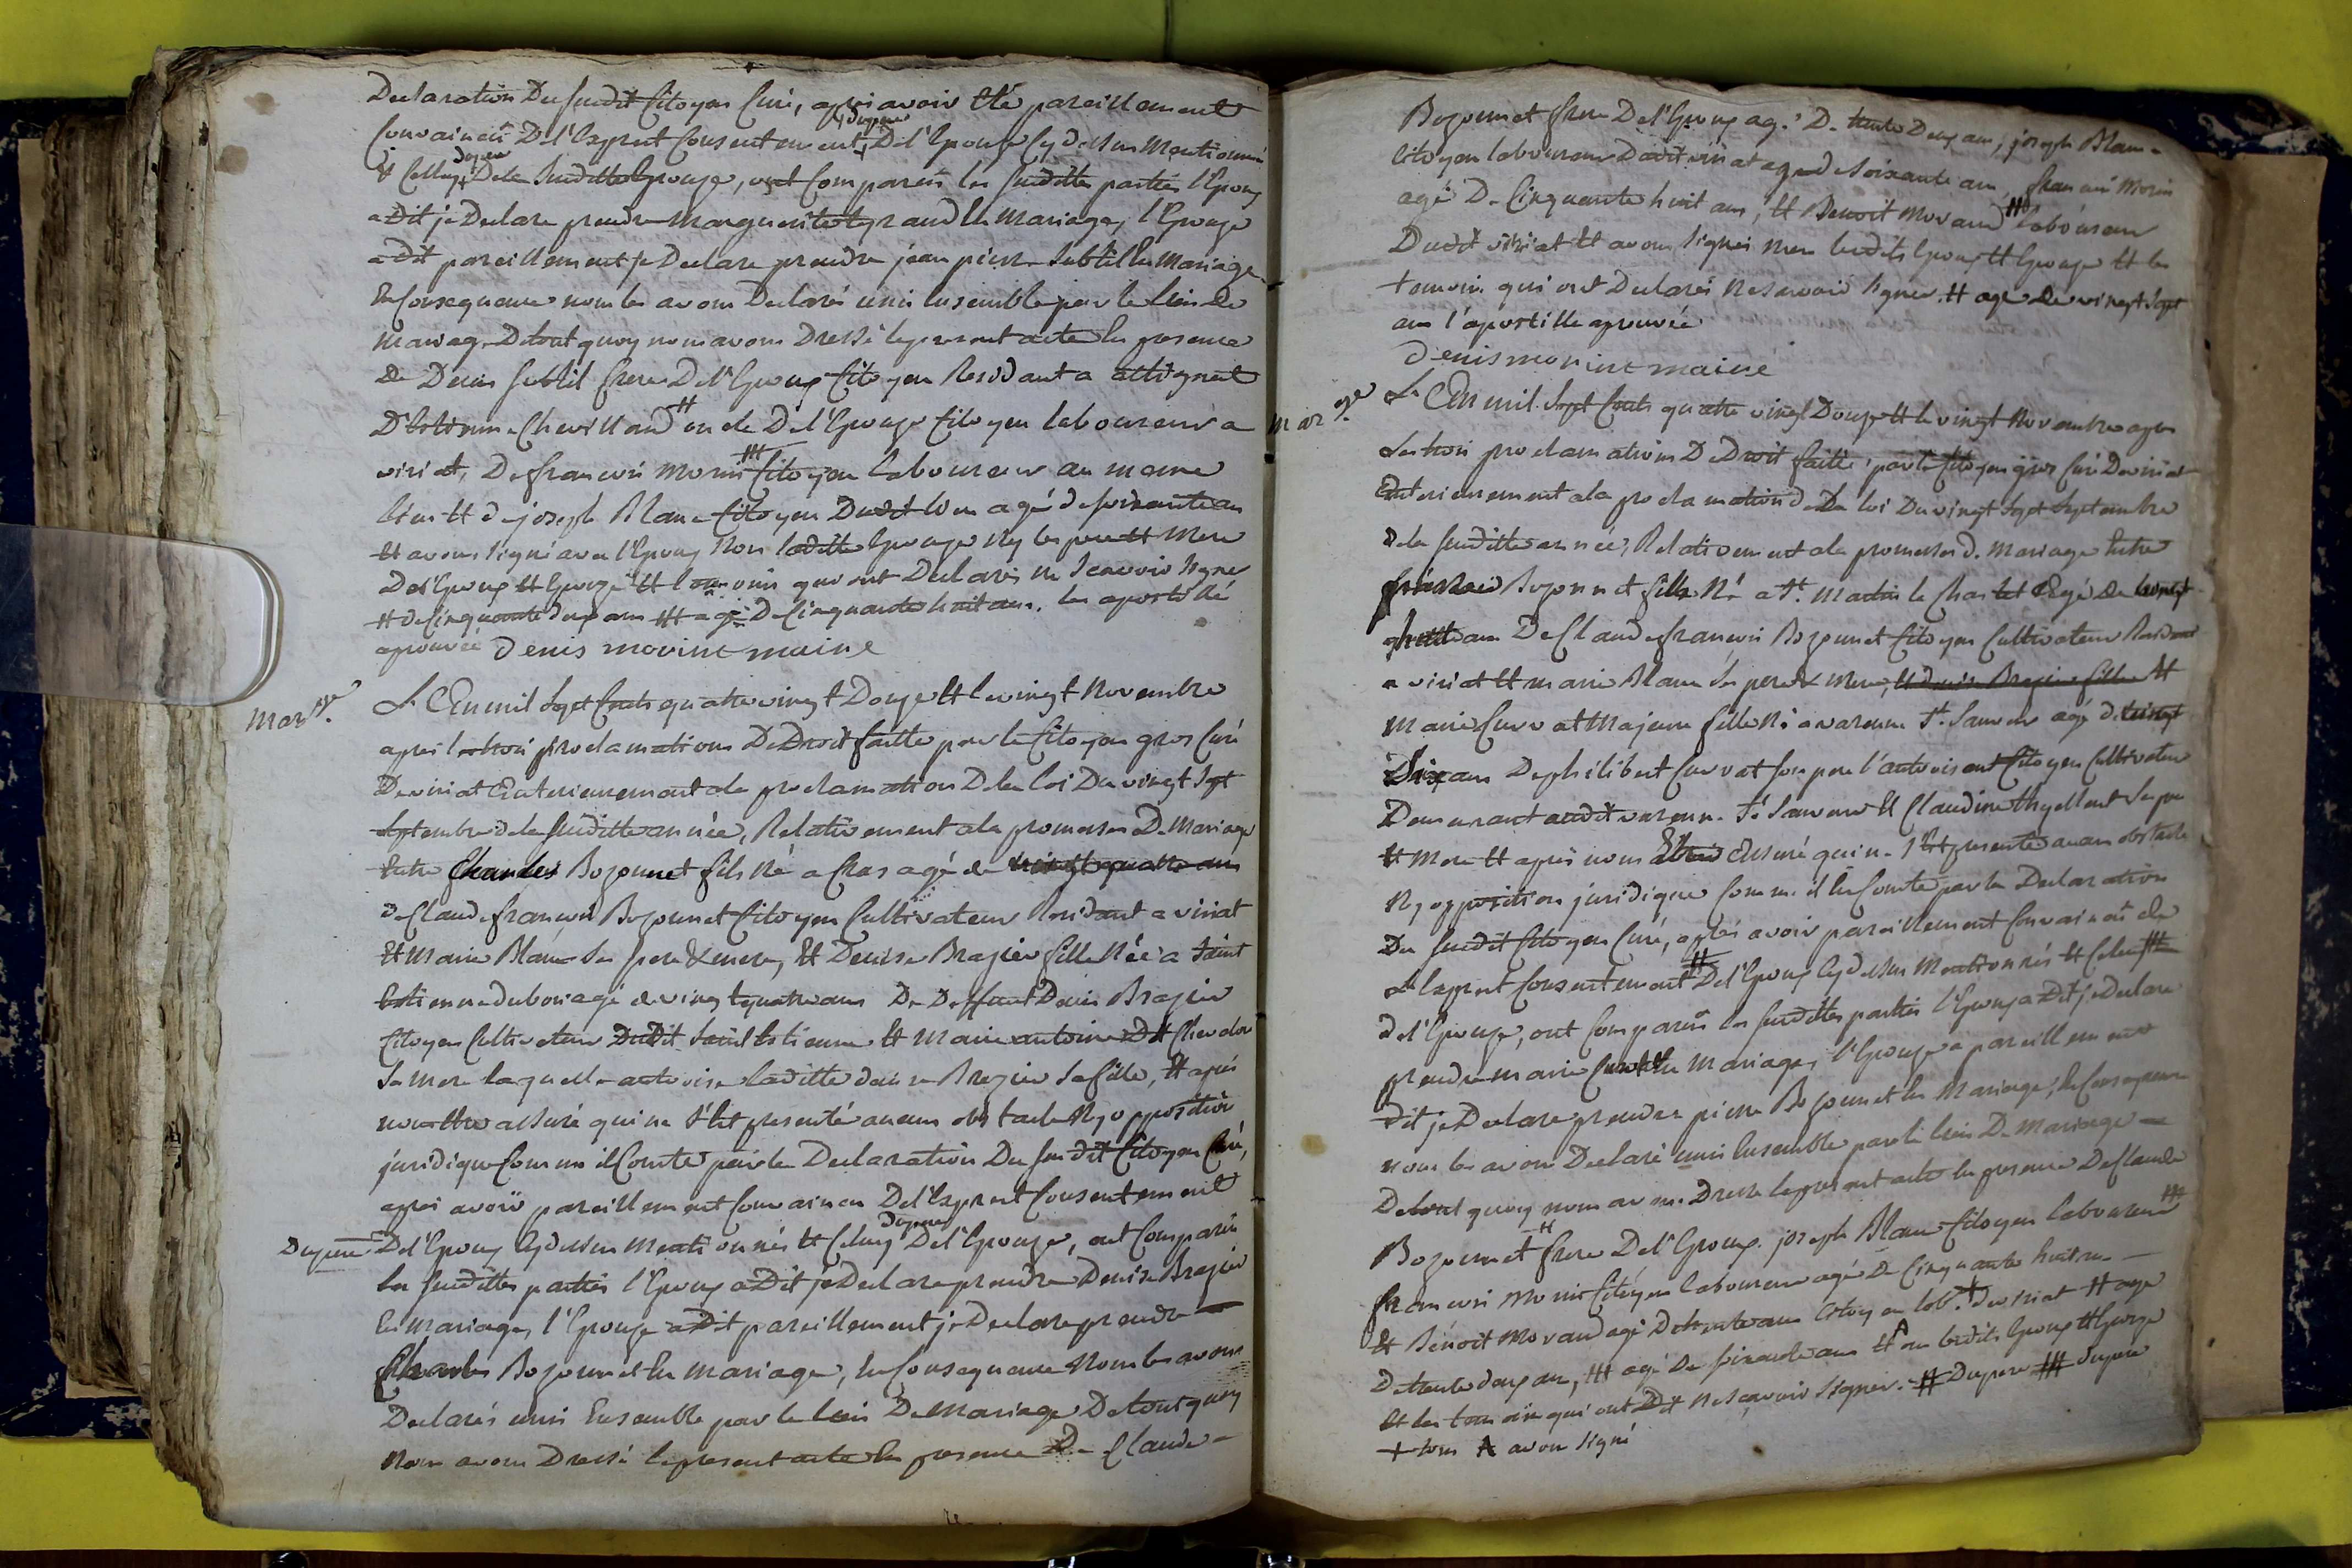 Declaration Du susdit Citoyen Curé, après avoir Eté pareillement
Convaincû De l'Exprest Consentement, du pere De l'Epouse Cy dessus Mentionné
Et Celluy du pere De la Susditte Epouse, ont Comparûs les susdittes parties l'Epoux
a Dit je Declare prendre Marguerite En Mariage, l'Epouse
a Dit pareillement je Declare prendre jean pierre Subtil En Mariage
En Consequence nous les avons Declarés unis Ensemble par le lien De
mariage De tout quoy nous avons Dressé le present acte En presence
De Denis Subtil frere De l'Epoux Citoyen Residant a attignat
D'Estienne Chevilland # oncle De l'Epouse Citoyen laboureur a
viriat, De françois Morin ## Citoyen laboureur au meme
lieu Et de joseph Blanc Citoyen Dudit lieu agé de soixante ans
Et avons signé avec l'Epoux Non laditte Epouse Ny les pere Et Mere
Des Epoux Et Epouse Et temoins qui ont Declarés ne Scavoir signer
# de Cinquante deux ans ## agé De Cinquante huit ans. les apostillé
aprouvée denis morin maire
Mar.ge L'An mil Sept Cents quatre vingt Douze Et le vingt Novembre
après les trois proclamations De Droit faitte par le Citoyen gros Curé
De viriat Anterieurement a la proclamation De la loi Du vingt Sept
Septembre de la susditte année, Relativement a la promesse De Mariage
Entre Charles Bozonnet fils Né a Chas agé de vingt quatre ans
de Claude françois Bozonnet Citoyen Cultivateur Residant a viriat
Et Marie Blanc Ses pere & mere, Et Denise Brazier fille Née a Saint
Estienne dubois agé de vingt quatre ans De Deffunt Denis Brazier
Citoyen Cultivateur Dudit Saint Estienne Et Marie antoinette Chevalon
Sa Mere laquelle autorise laditte denise Brazier Sa fille, Et après
nous Etre assuré qui ne S'Est presenté aucuns obstacle Ny opposition
juridique Comme il Conste par la Declaration Du susdit Citoyen Curé,
après avoir pareillement Convaincu De l'Exprest Consentement
Du pere De l'Epoux Cy dessus Mentionnés Et Celuy du pere De l'Epouse, ont Comparûs
les susdittes parties l'Epoux a Dit je Declare prendre Denise Brazier
En Mariage, l'Epouse a Dit pareillement je Declare prendre
Charles Bozonnet En Mariage, En Consequence Nous les avons
Declarés unis Ensemble par le lien De Mariage De tout quoy
Nous avons Dressé le present acte En presence De Claude
Bozonnet frere De l'Epoux agé De trente Deux ans, joseph Blanc
Citoyen laboureur Dudit viriat agé de Soixante ans, francois Morin
agé De Cinquante huit ans, Et Benoit Morand # laboureur
Dudit viriat Et avons signés Non lesdits Epoux Et Epouse Et les
temoins qui ont Declarés Ne Scavoir signer. # agé de vingt Sept
ans l'apostille aprouvée
denis morin maire
Mar.ge L'An mil Sept Cents quatre vingt Douze Et le vingt Novembre après
les trois proclamations De Droit faitte par le Citoyen gros Curé De viriat
Anterieurement a la proclamation De La loi Du vingt Sept Septembre
de la susditte année, Relativement a la promesse de Mariage Entre
Bozonnet fils Né a St. Martin le Chastel Agé de vingt
huit ans De Claude françois Bozonnet Citoyen Cultivateur Residant
a viriat Et marie Blanc Ses pere & Mere, Et denise Brazier fille Et
Marie Curvat Majeure fille Né a varenne St. Sauveur agé De vingt
Six ans De philibert Curvat son pere l'autorisant Citoyen Cultivateur
Demeurant audit varenne St. Sauveur Et Claudine Ses pere
Et Mere Et après nous Etre Assuré qui ne s'Est presenté aucun obstacle
Ny opposition juridique Comme il En Conste par la Declaration
Du susdit Citoyen Curé, après avoir pareillement Convaincû de
L'Exprest Consentement # De l'Epoux Cy dessus Mentionnés Et Celuy ##
de l'Epouse, ont Comparûs les susdittes parties l'Epoux a Dit je Declare
prendre marie Curvat En Mariage, l'Epouse a pareillement
dit je Declare prendre pierre Bozonnet En Mariage, En Consequence
nous les avons Declaré unis Ensemble par le lien De Mariage
De tout quoy nous avons Dressé le present acte En presence De Claude
Bozonnet # frere De l'Epoux. joseph Blanc Citoyen laboureur ##
francois Morin Citoyen laboureur agé De Cinquante huit ans
Et Bénoit Morand agé De trente ans Citoyen lab.r + de viriat # agé
De trente deux ans, ## agé De soixante ans Et A non lesdits Epoux Et Epouse
Et les temoins qui ont Dit Ne Sçavoir Signer. # Du pere ## du pere
+ tous A avons signé